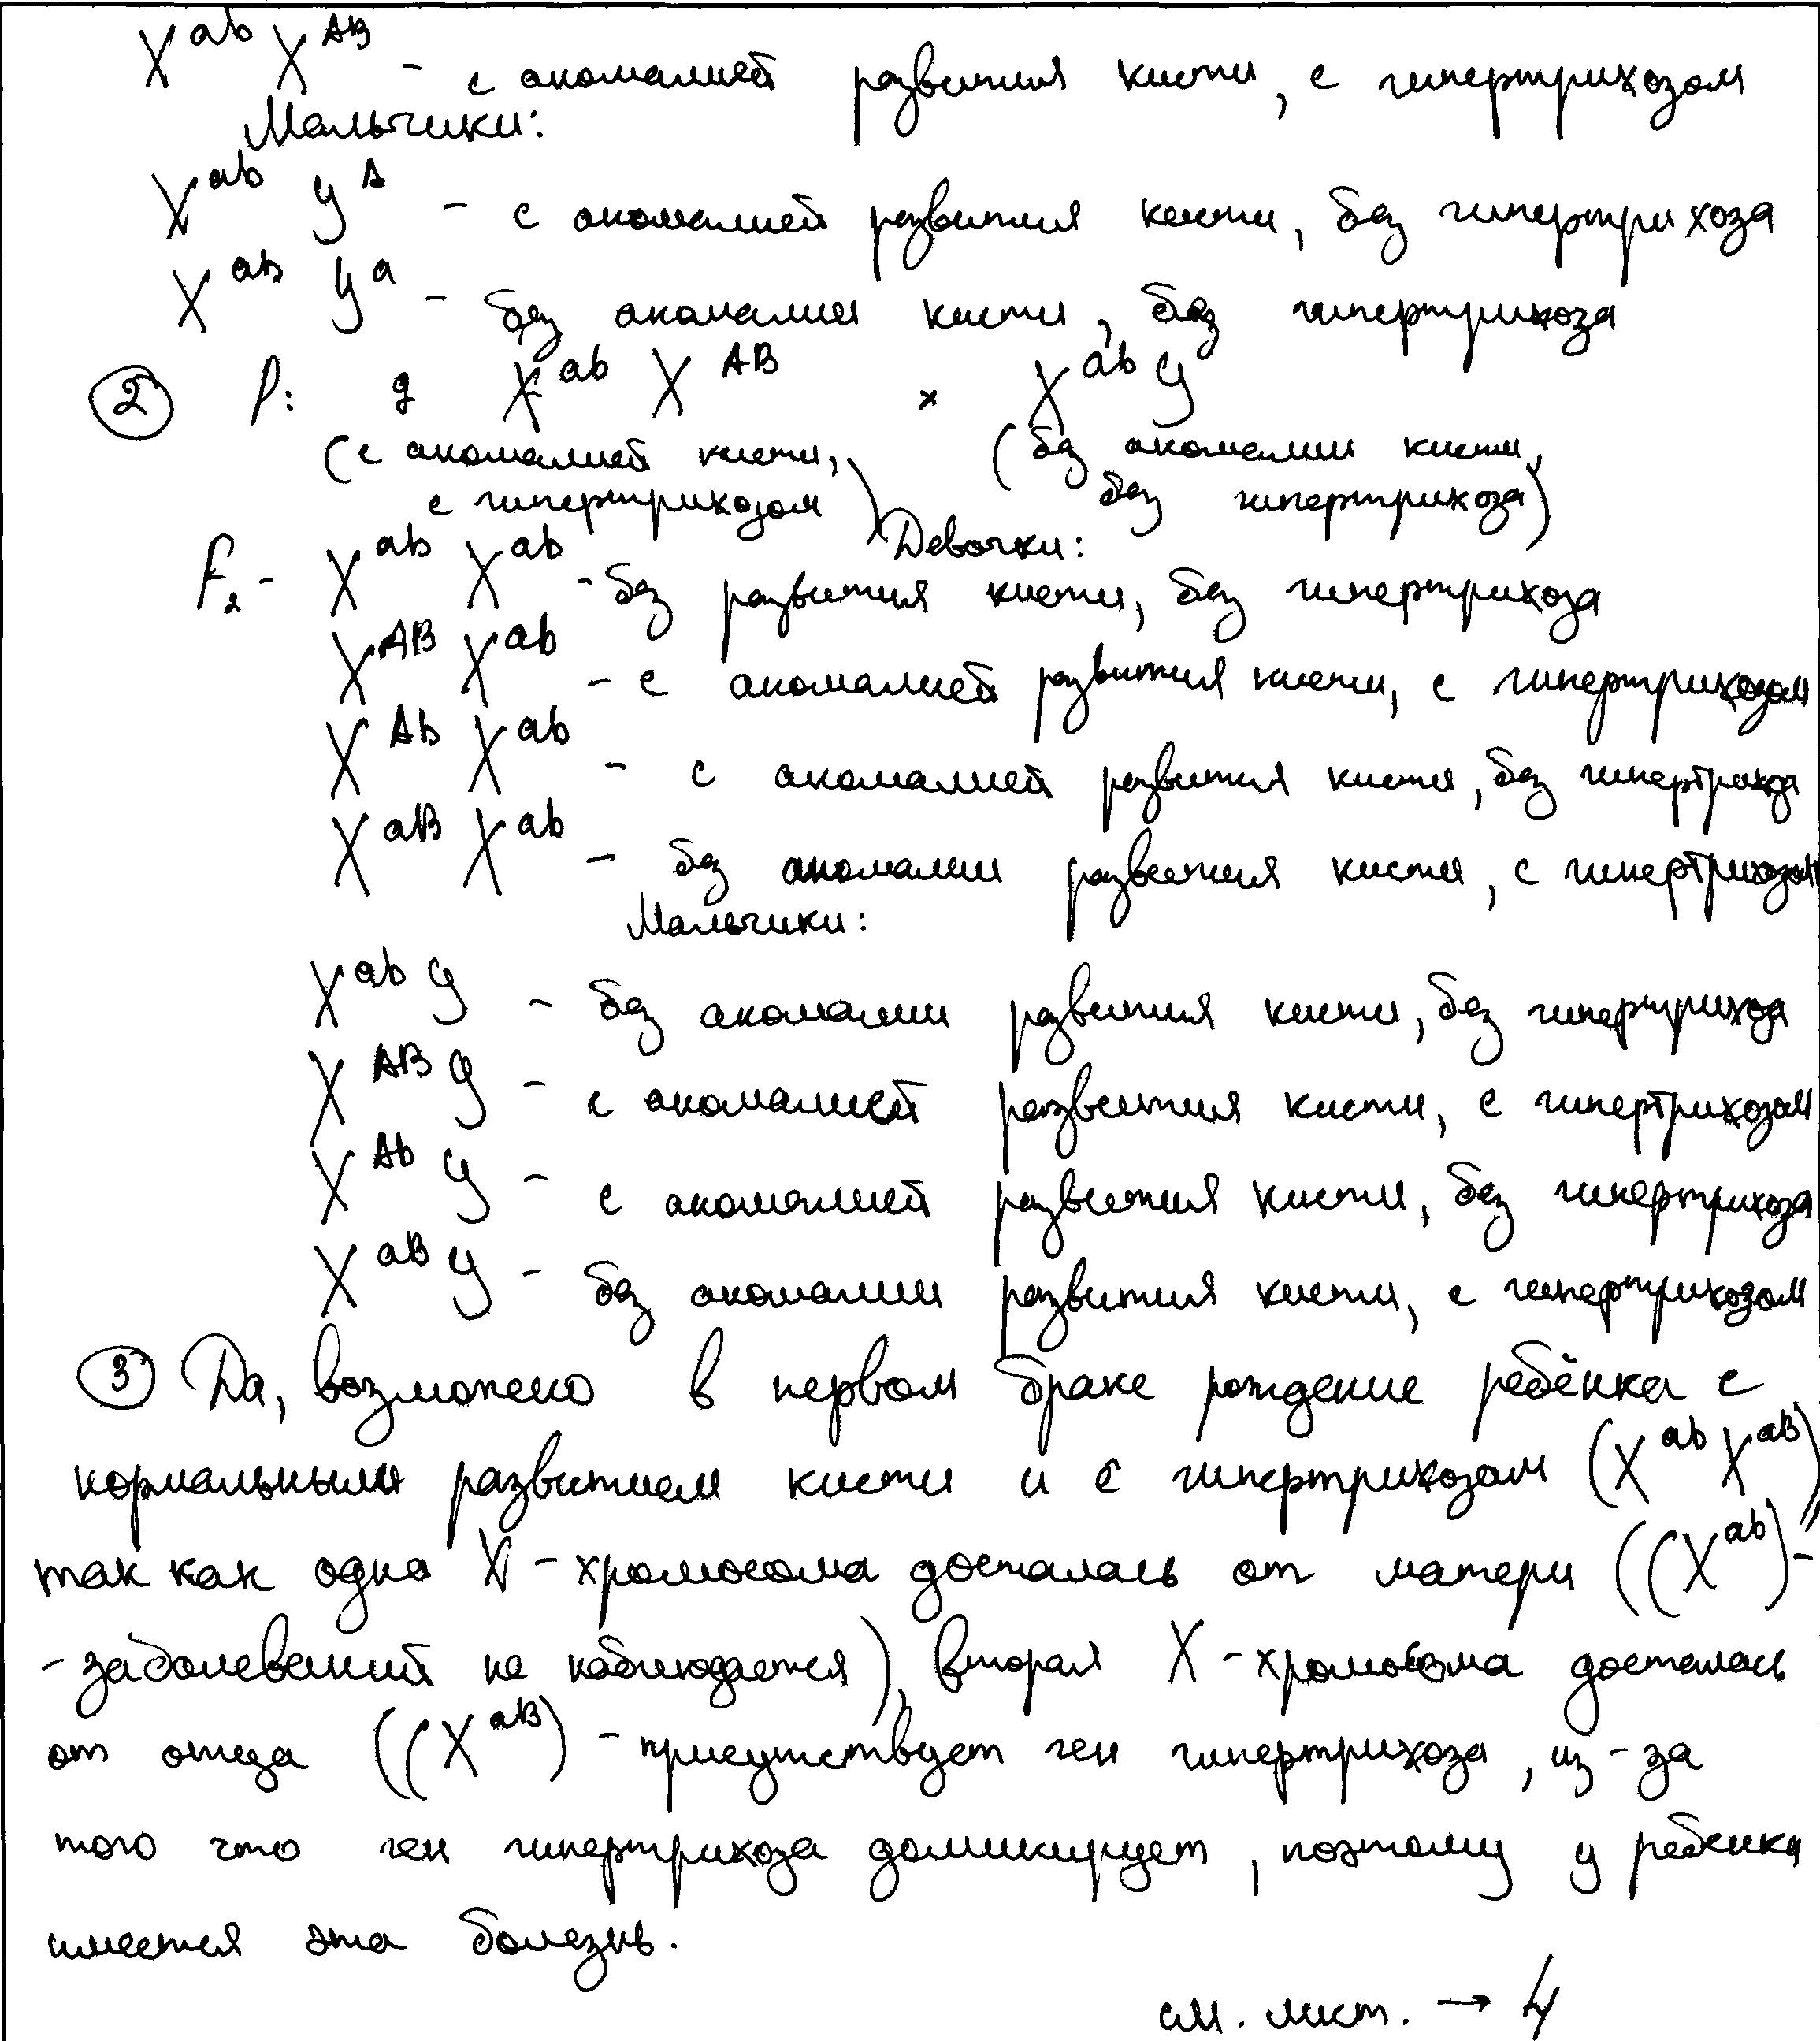 X^ab X^AB - с аномалией развития кисти, с гипертрихозом
Мальчики:
X^ab У^A - с аномалией развития кисти, без гипертрихоза
X^ab У^a - без аномалии кисти, без гипертрихоза
② P: ♀ X^ab X^AB × X^ab У
(с аномалией кисти, с гипертрихозом) (без аномалии кисти, без гипертрихоза)
Девочки:
F₂ - X^ab X^ab - без развития кисти, без гипертрихоза
X^AB X^ab - с аномалией развития кисти, с гипертрихозом
X^Ab X^ab - с аномалией развития кисти, без гипертриха
X^aB X^ab - без аномалии развития кисти, с гипертрихозом
Мальчики:
X^ab У - без аномалии развития кисти, без гипертрихоза
X^AB У - с аномалией развития кисти, с гипертрихозом
X^Ab У - с аномалией развития кисти, без гипертрихоза
X^aB У - без аномалии развития кисти, с гипертрихозом
③ Да, возможено в первом браке рождение ребёнка с
нормальныма развитием кисти и с гипертрихозом (X^ab X^aB),
так как одна X-хромосома досталась от матери ((X^ab) -
- заболеваний не наблюдается), вторая X-хромосома досталась
от отца ((X^aB) - присутствует ген гипертрихоза, из-за
того что ген гипертрихоза доминирует, поэтому у ребенка
имеется эта болезнь.
см. лист. → 4